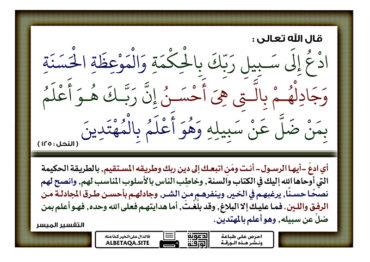 قال الله تعالى :
ادْعُ إِلَى سَبِيلِ رَبِّكَ بِالْحِكْمَةِ وَالْمَوْعِظَةِ الْحَسَنَةِ
وَجَادِلْهُمْ بِالَّتِي هِيَ أَحْسَنُ إِنَّ رَبَّكَ هُوَ أَعْلَمُ
بِمَنْ ضَلَّ عَنْ سَبِيلِهِ وَهُوَ أَعْلَمُ بِالْمُهْتَدِينَ
( النحل : ١٢٥ )
أي ادعُ -أيها الرسول- أنت ومَن اتبعك إلى دين ربك وطريقه المستقيم, بالطريقة الحكيمة
التي أوحاها الله إليك في الكتاب والسنة, وخاطِب الناس بالأسلوب المناسب لهم, وانصح لهم
نصحًا حسنًا, يرغبهم في الخير, وينفرهم من الشر, وجادلهم بأحسن طرق المجادلة من
الرفق واللين. فما عليك إلا البلاغ, وقد بلَّغْتَ, أما هدايتهم فعلى الله وحده, فهو أعلم بمن
ضلَّ عن سبيله, وهو أعلم بالمهتدين.
التفسير الميسر
ALBETAQA.SITE
احرص على طباعة
ونشر هذه الورقة